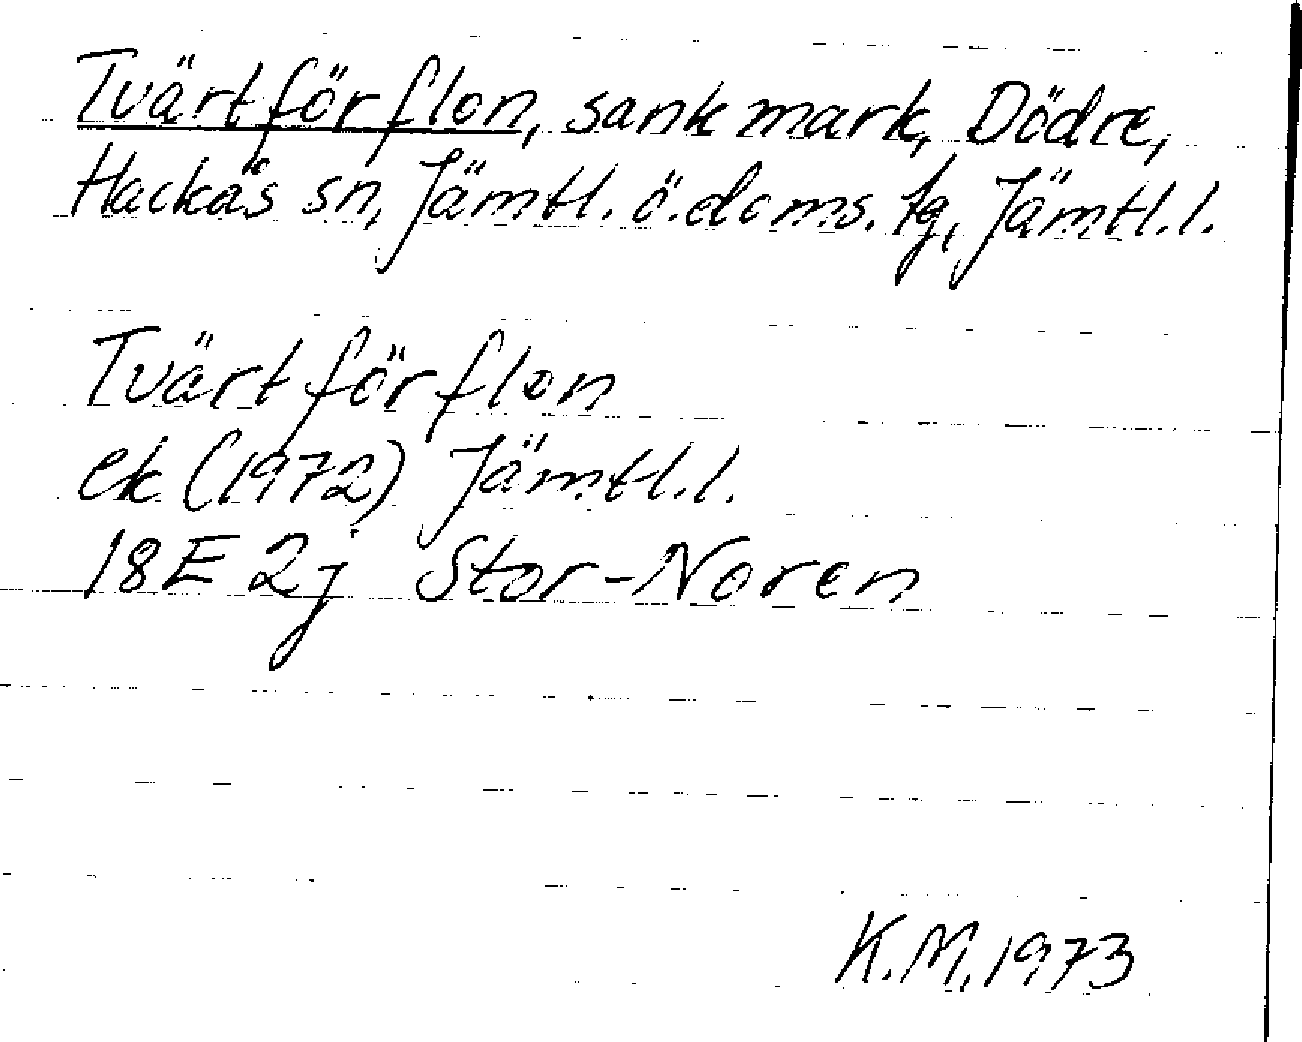 Tvärtför flon, sank mark, Dödre,
Hackås sn, Jämtl. ö. doms. tg, Jämtl. l.
Tvärtför flon
ek (1972) Jämtl. l.
18E 2j Stor-Noren
K.M. 1973